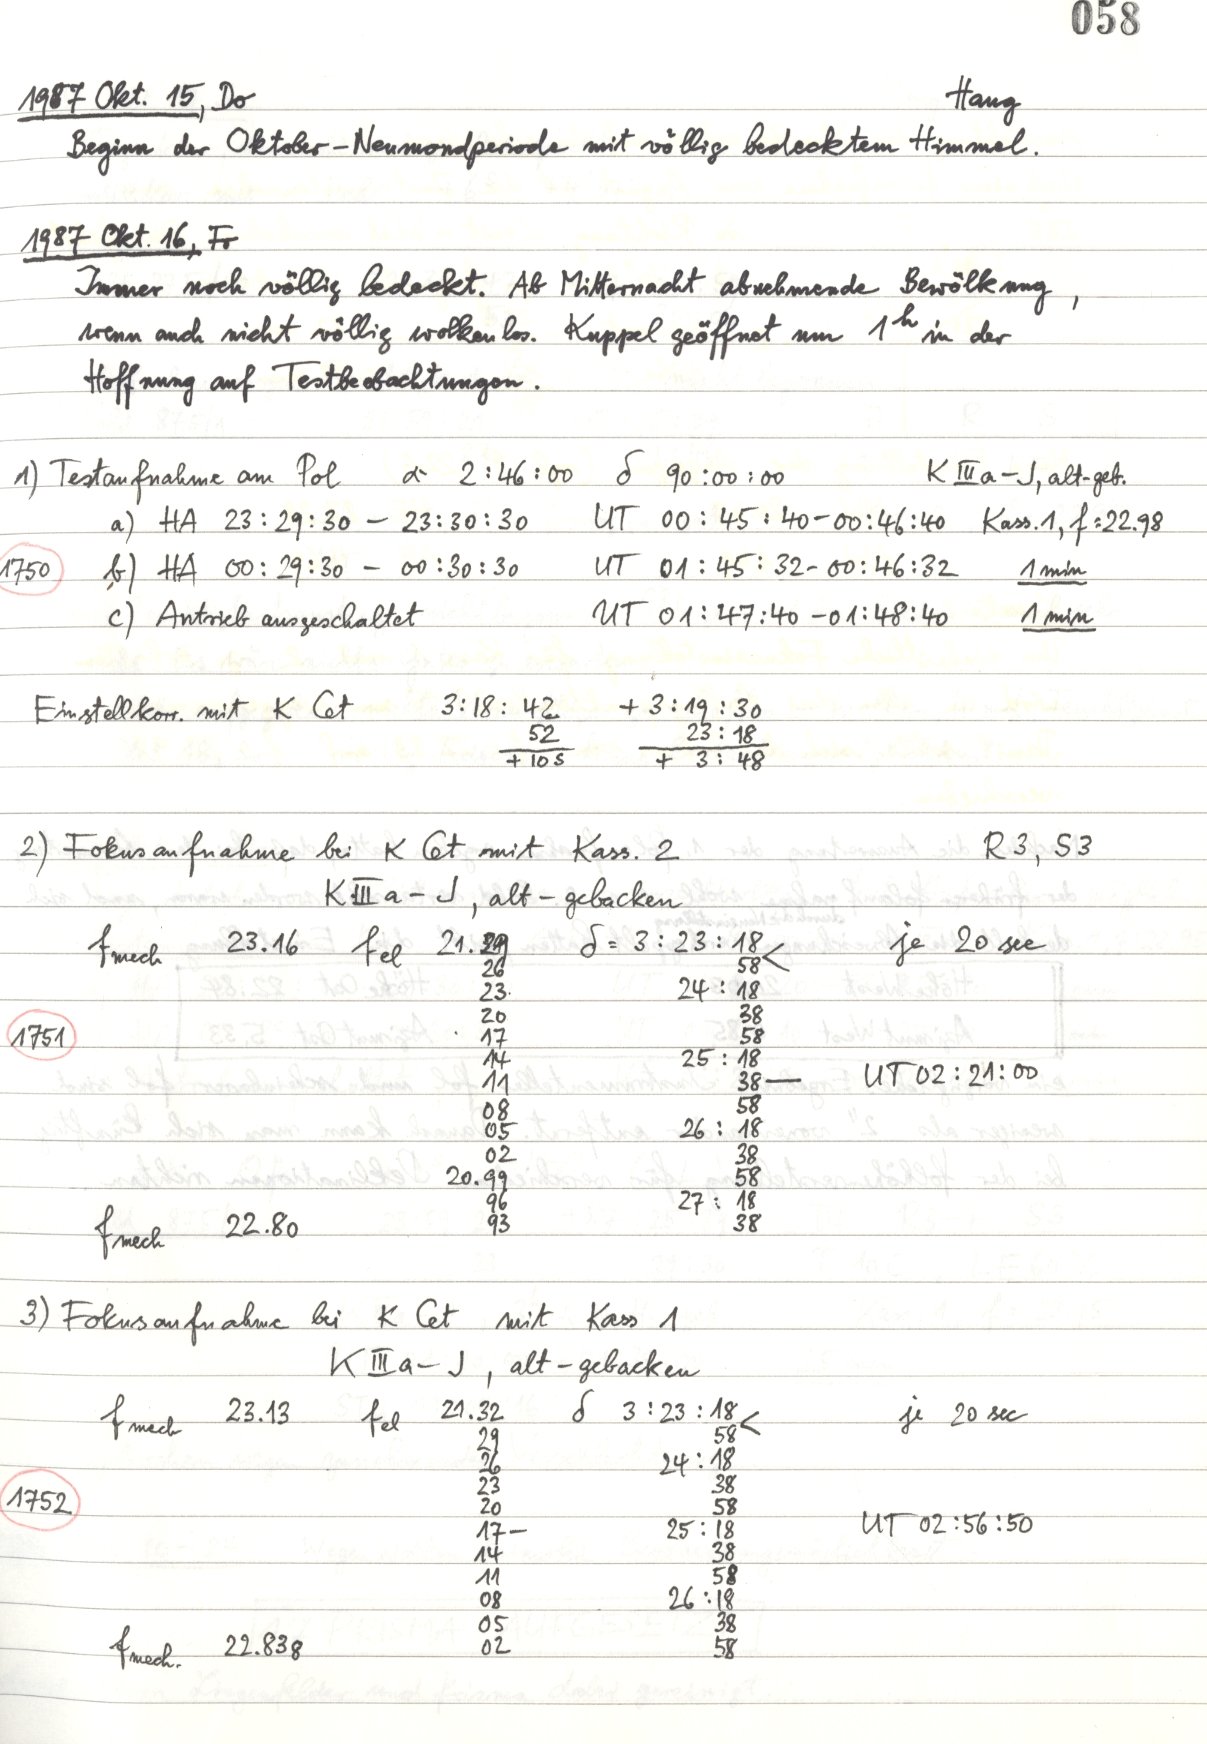 058
1987 Okt. 15, Do Haug
Beginn der Oktober-Neumondperiode mit völlig bedecktem Himmel.
1987 Okt. 16, Fr
Immer noch völlig bedeckt. Ab Mitternacht abnehmende Bewölkung,
wenn auch nicht völlig wolkenlos. Kuppel geöffnet um 1h in der
Hoffnung auf Testbeobachtungen.
1) Testaufnahme am Pol α 2:46:00 δ 90:00:00 K IIIa-J, alt-geb.
a) HA 23:29:30 - 23:30:30 UT 00:45:40-00:46:40 Kass.1, f=22.98
1750 b) HA 00:29:30 - 00:30:30 UT 01:45:32-00:46:32 1 min
c) Antrieb ausgeschaltet UT 01:47:40-01:48:40 1 min
Einstellkorr. mit K Cet 3:18:42 + 3:19:30
52 23:18
+ 10 s + 3:48
2) Fokusaufnahme bei K Cet mit Kass. 2 R3, S3
K IIIa-J, alt-gebacken
fmech 23.16 fel 21.29 δ = 3:23:18 < je 20 sec
26 58
23 24:18
20 38
1751 17 58
14 25:18
11 38 — UT 02:21:00
08 58
05 26:18
02 38
20.99 58
96 27:18
fmech 22.80 93 38
3) Fokusaufnahme bei K Cet mit Kass 1
K IIIa-J, alt-gebacken
fmech 23.13 fel 21.32 δ 3:23:18 < je 20 sec
29 58
26 24:18
23 38
1752 20 58
17 — 25:18 UT 02:56:50
14 38
11 58
08 26:18
05 38
fmech. 22.838 02 58